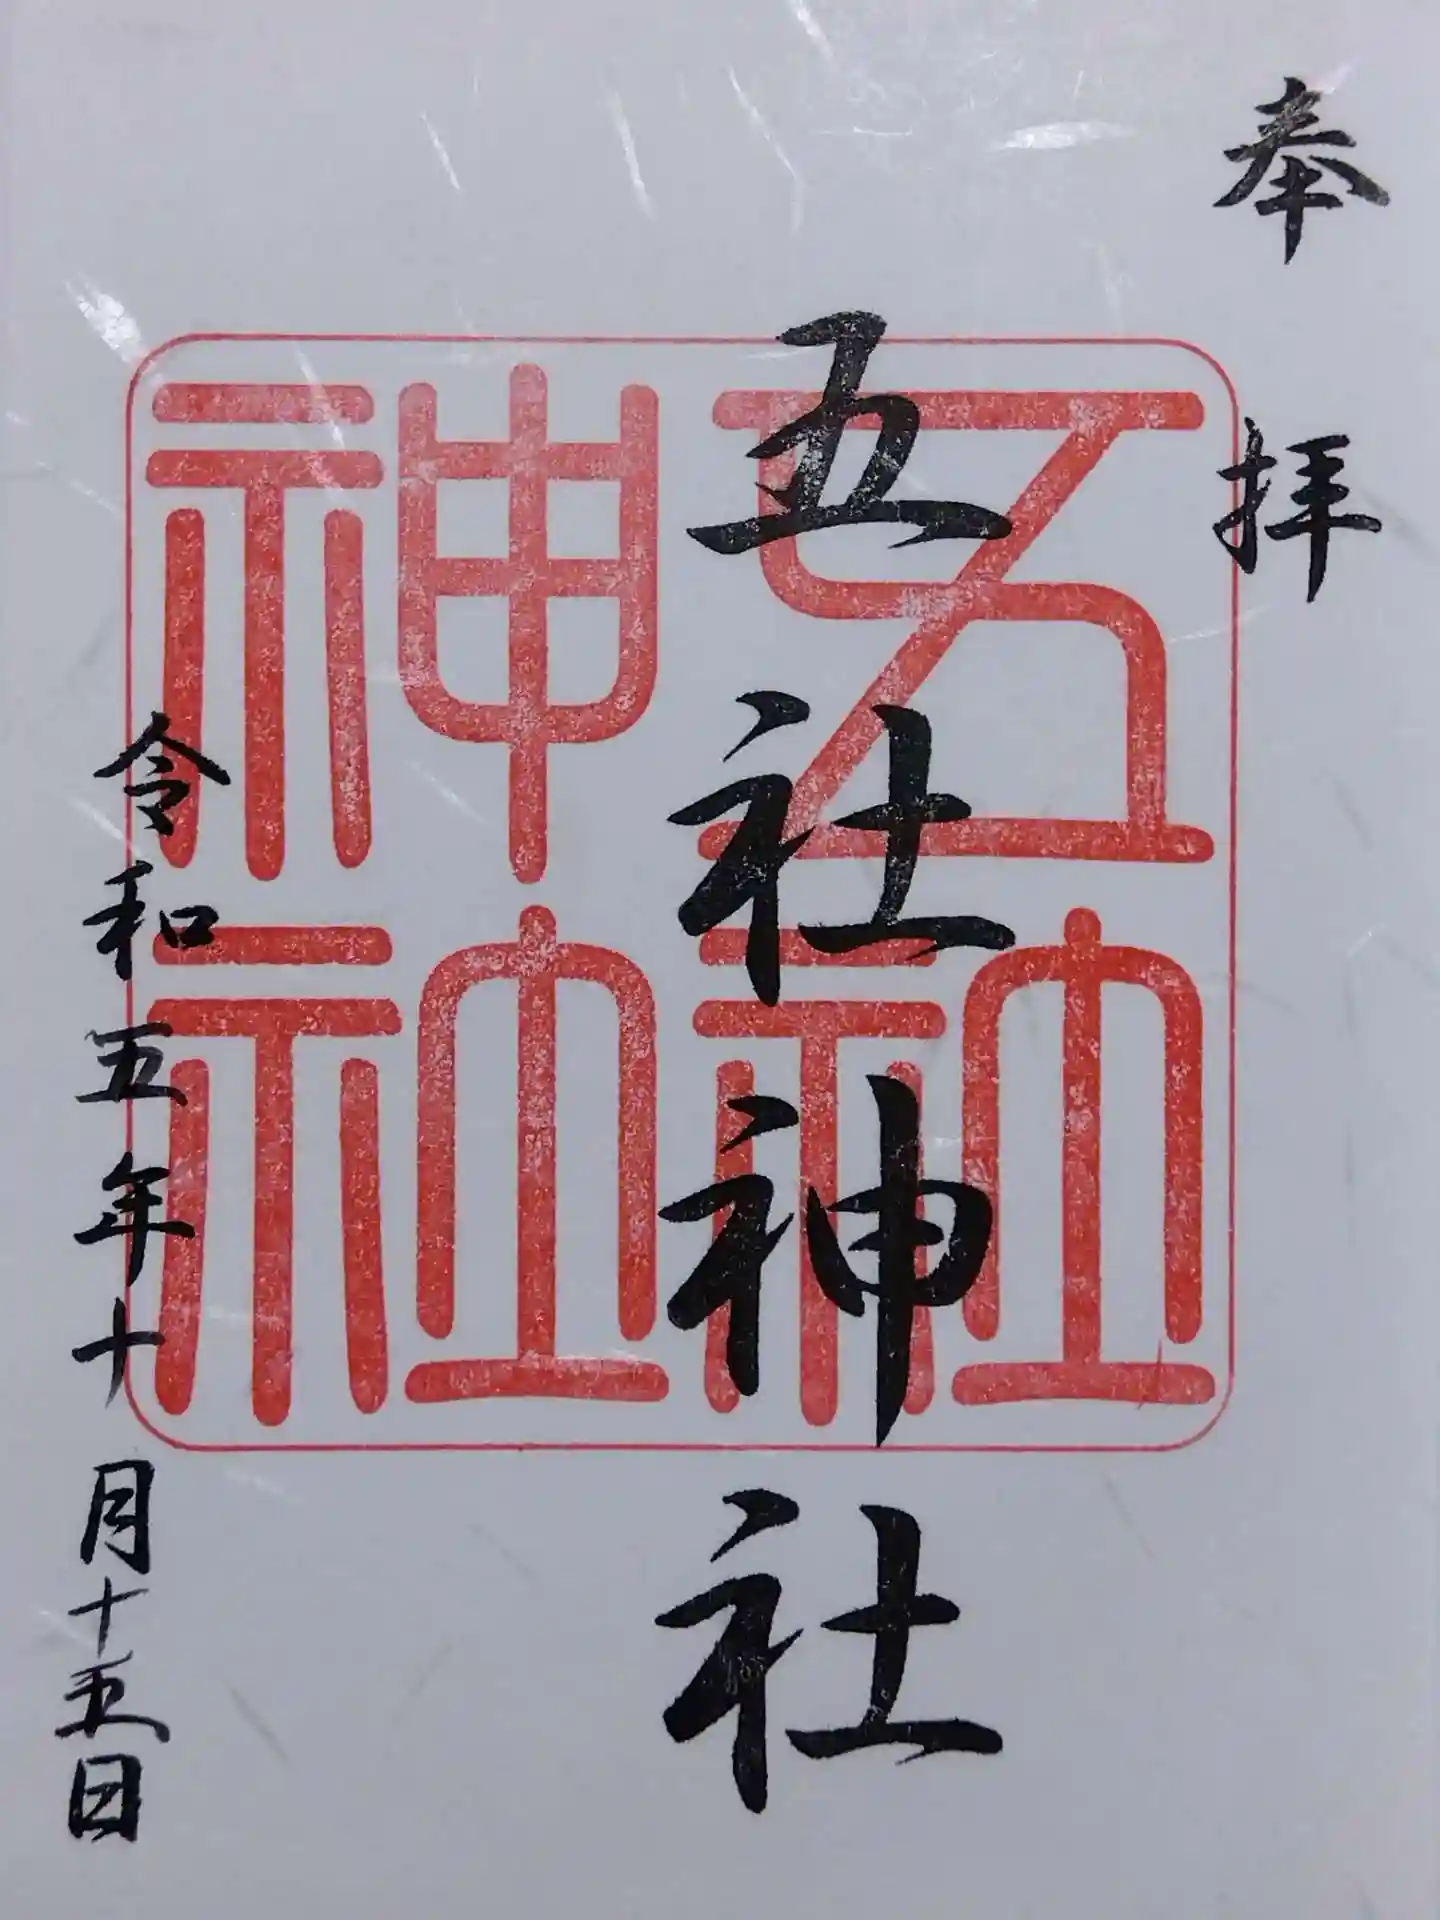 奉拝
五社神社
五社
神社
令和五年十月十五日